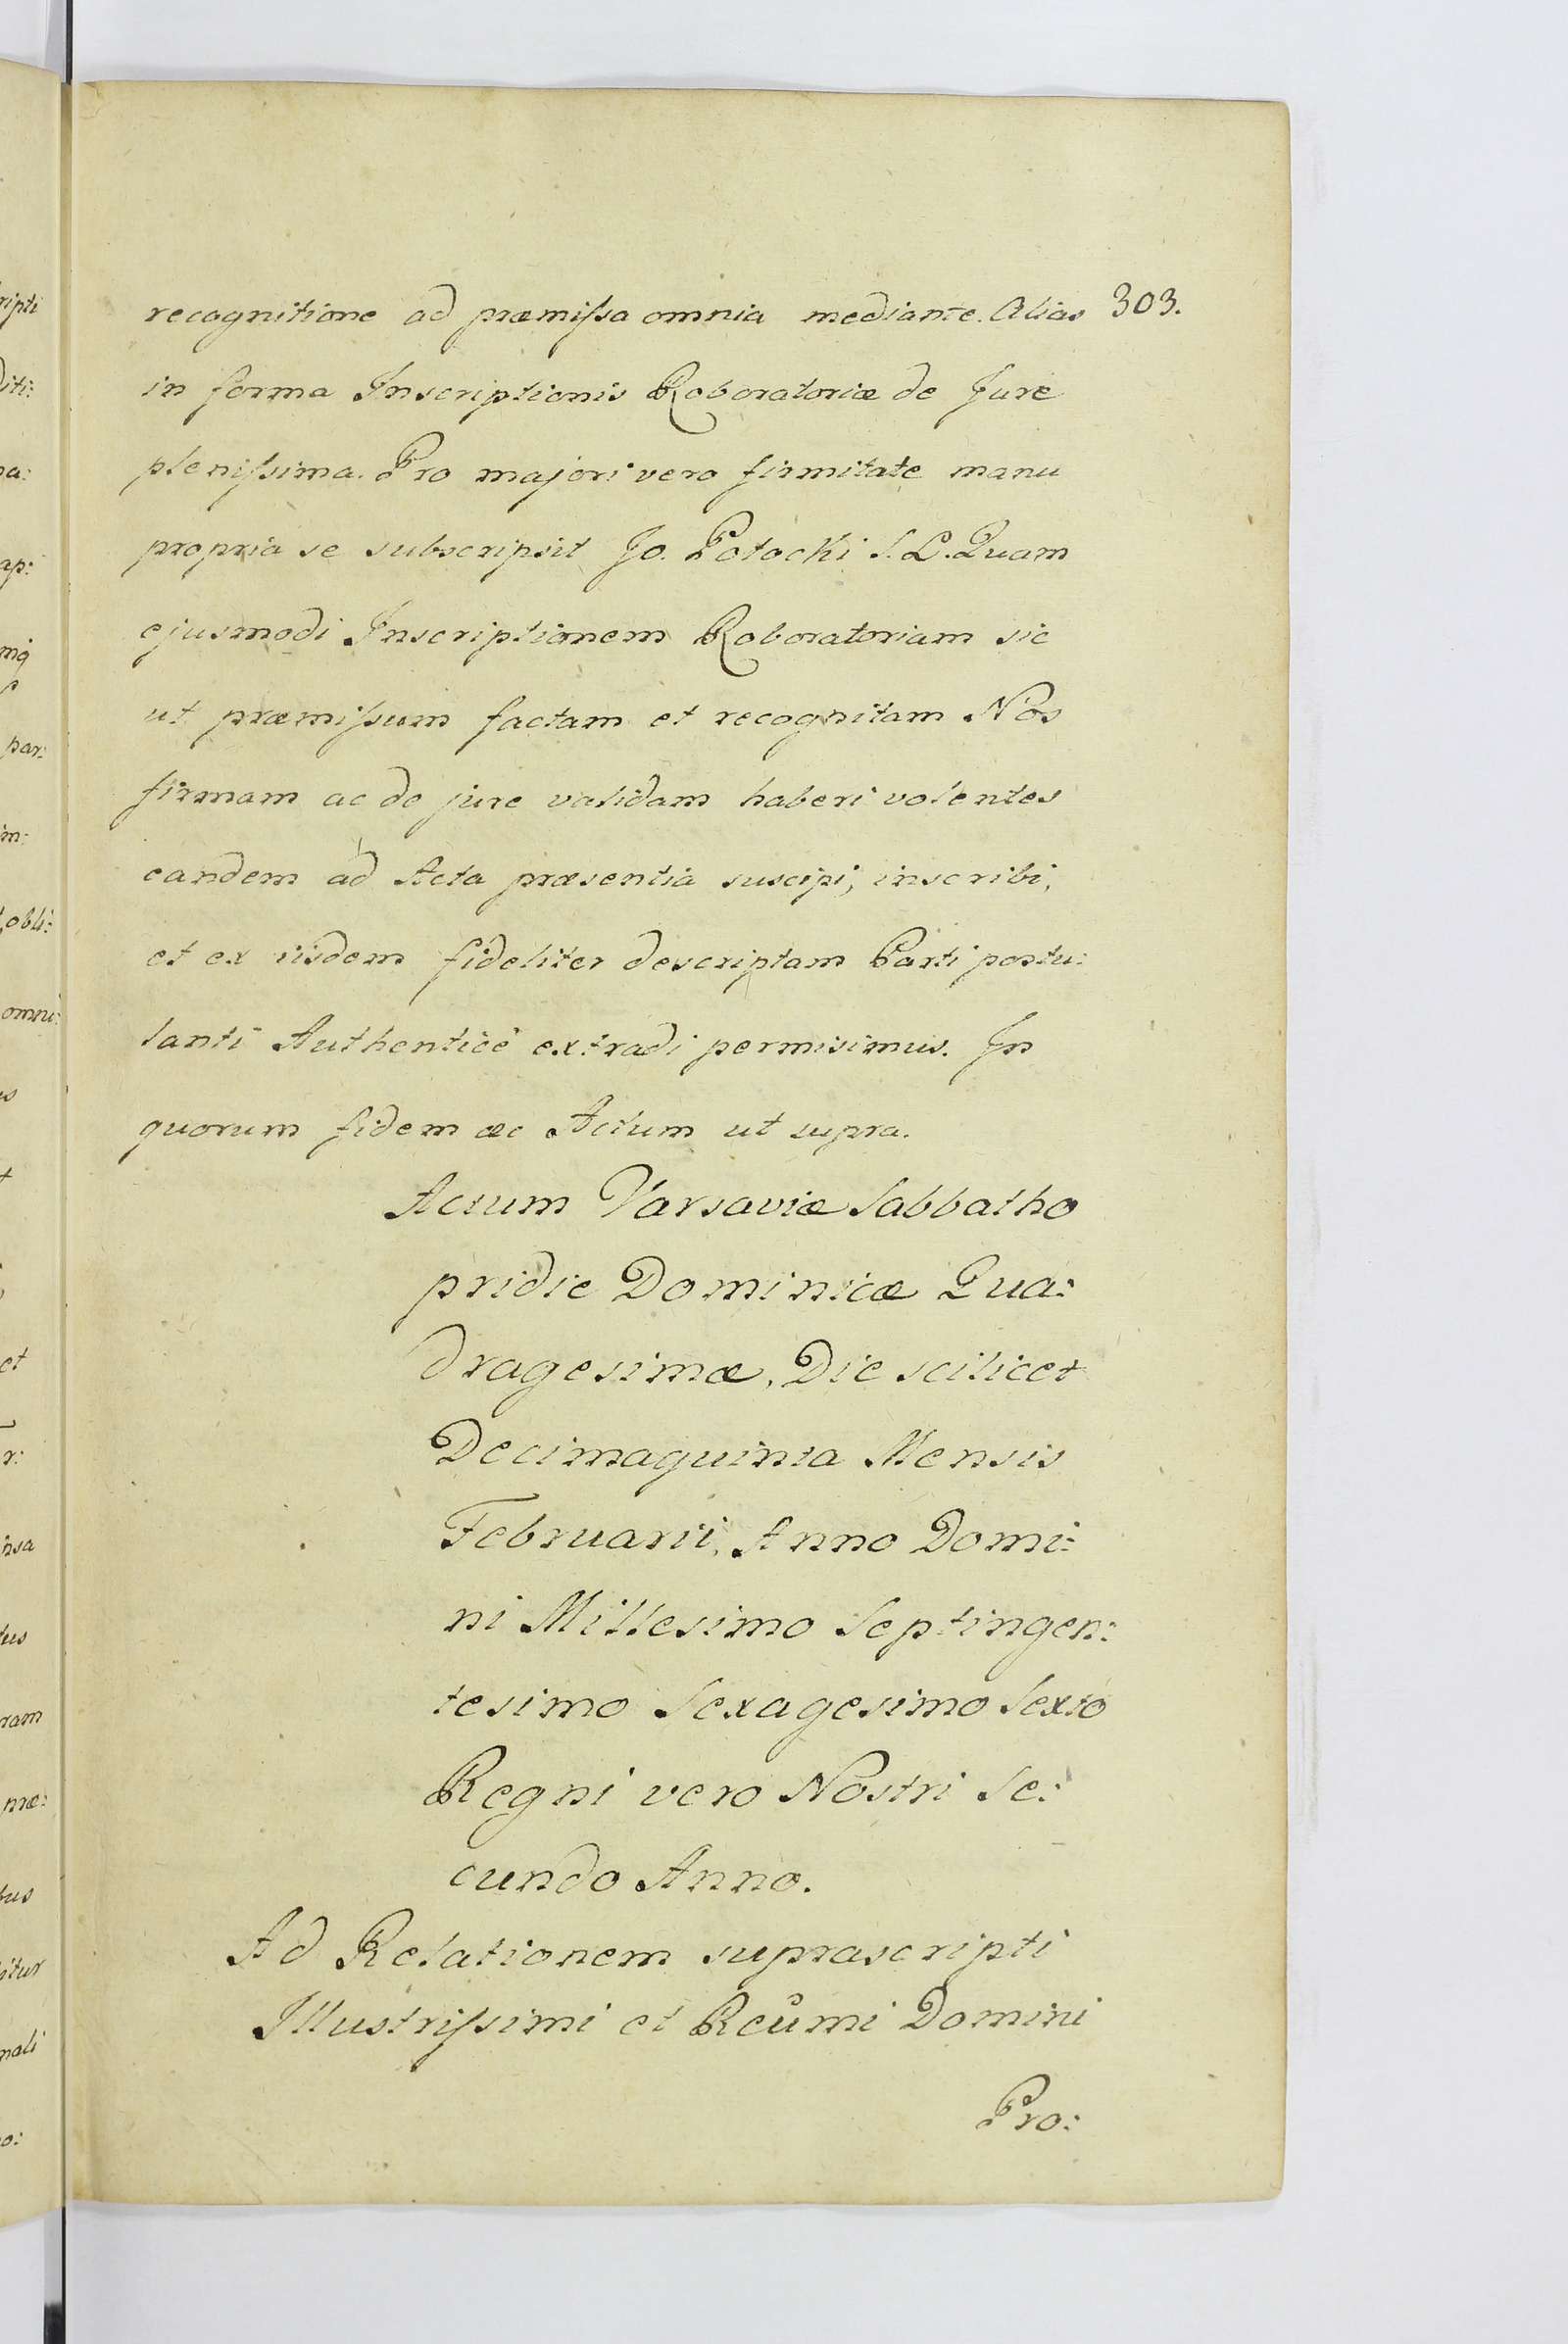 303.
recognitione ad præmiſsa omnia mediante. Alias
in forma Inscriptionis Roboratoriæ de Jure
pleniſsima. Pro majori vero firmitate manu
propria se subscripsit Jo. Potocki S. L. Quam
ejusmodi Inscriptionem Roboratoriam sic
ut præmiſsum factam et recognitam Nos
firmam ac de jure validam haberi volentes
eandem ad Acta præsentia suscipi, inscribi,
et ex iisdem fideliter descriptam Parti postu:
lanti Authenticè extradi permisimus. In
quorum fidem &c Actum ut supra.
Actum Varsaviæ Sabbatho
pridie Dominicæ Qua:
dragesimæ, Die scilicet
Decimaquinta Mensis
Februarii, Anno Domi:
ni Millesimo Septingen:
tesimo Sexagesimo Sexto
Regni vero Nostri Se:
cundo Anno.
Ad Relationem suprascripti
Illustriſsimi et Reūmi Domini
Pro: